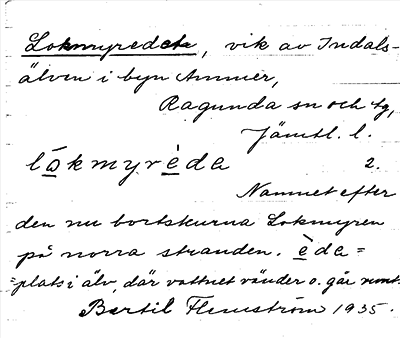 Lokmyredeta, vik av Indals-
älven i byn Ammer,
Ragunda sn och tg,
Jämtl. l.
lo̲kmyrè̲da 2.
Namnet efter
den nu bortskurna Lokmyren
på norra stranden. è̲da =
=plats i älv, där vattnet vänder o. går runt.
Bertil Flemström 1935.